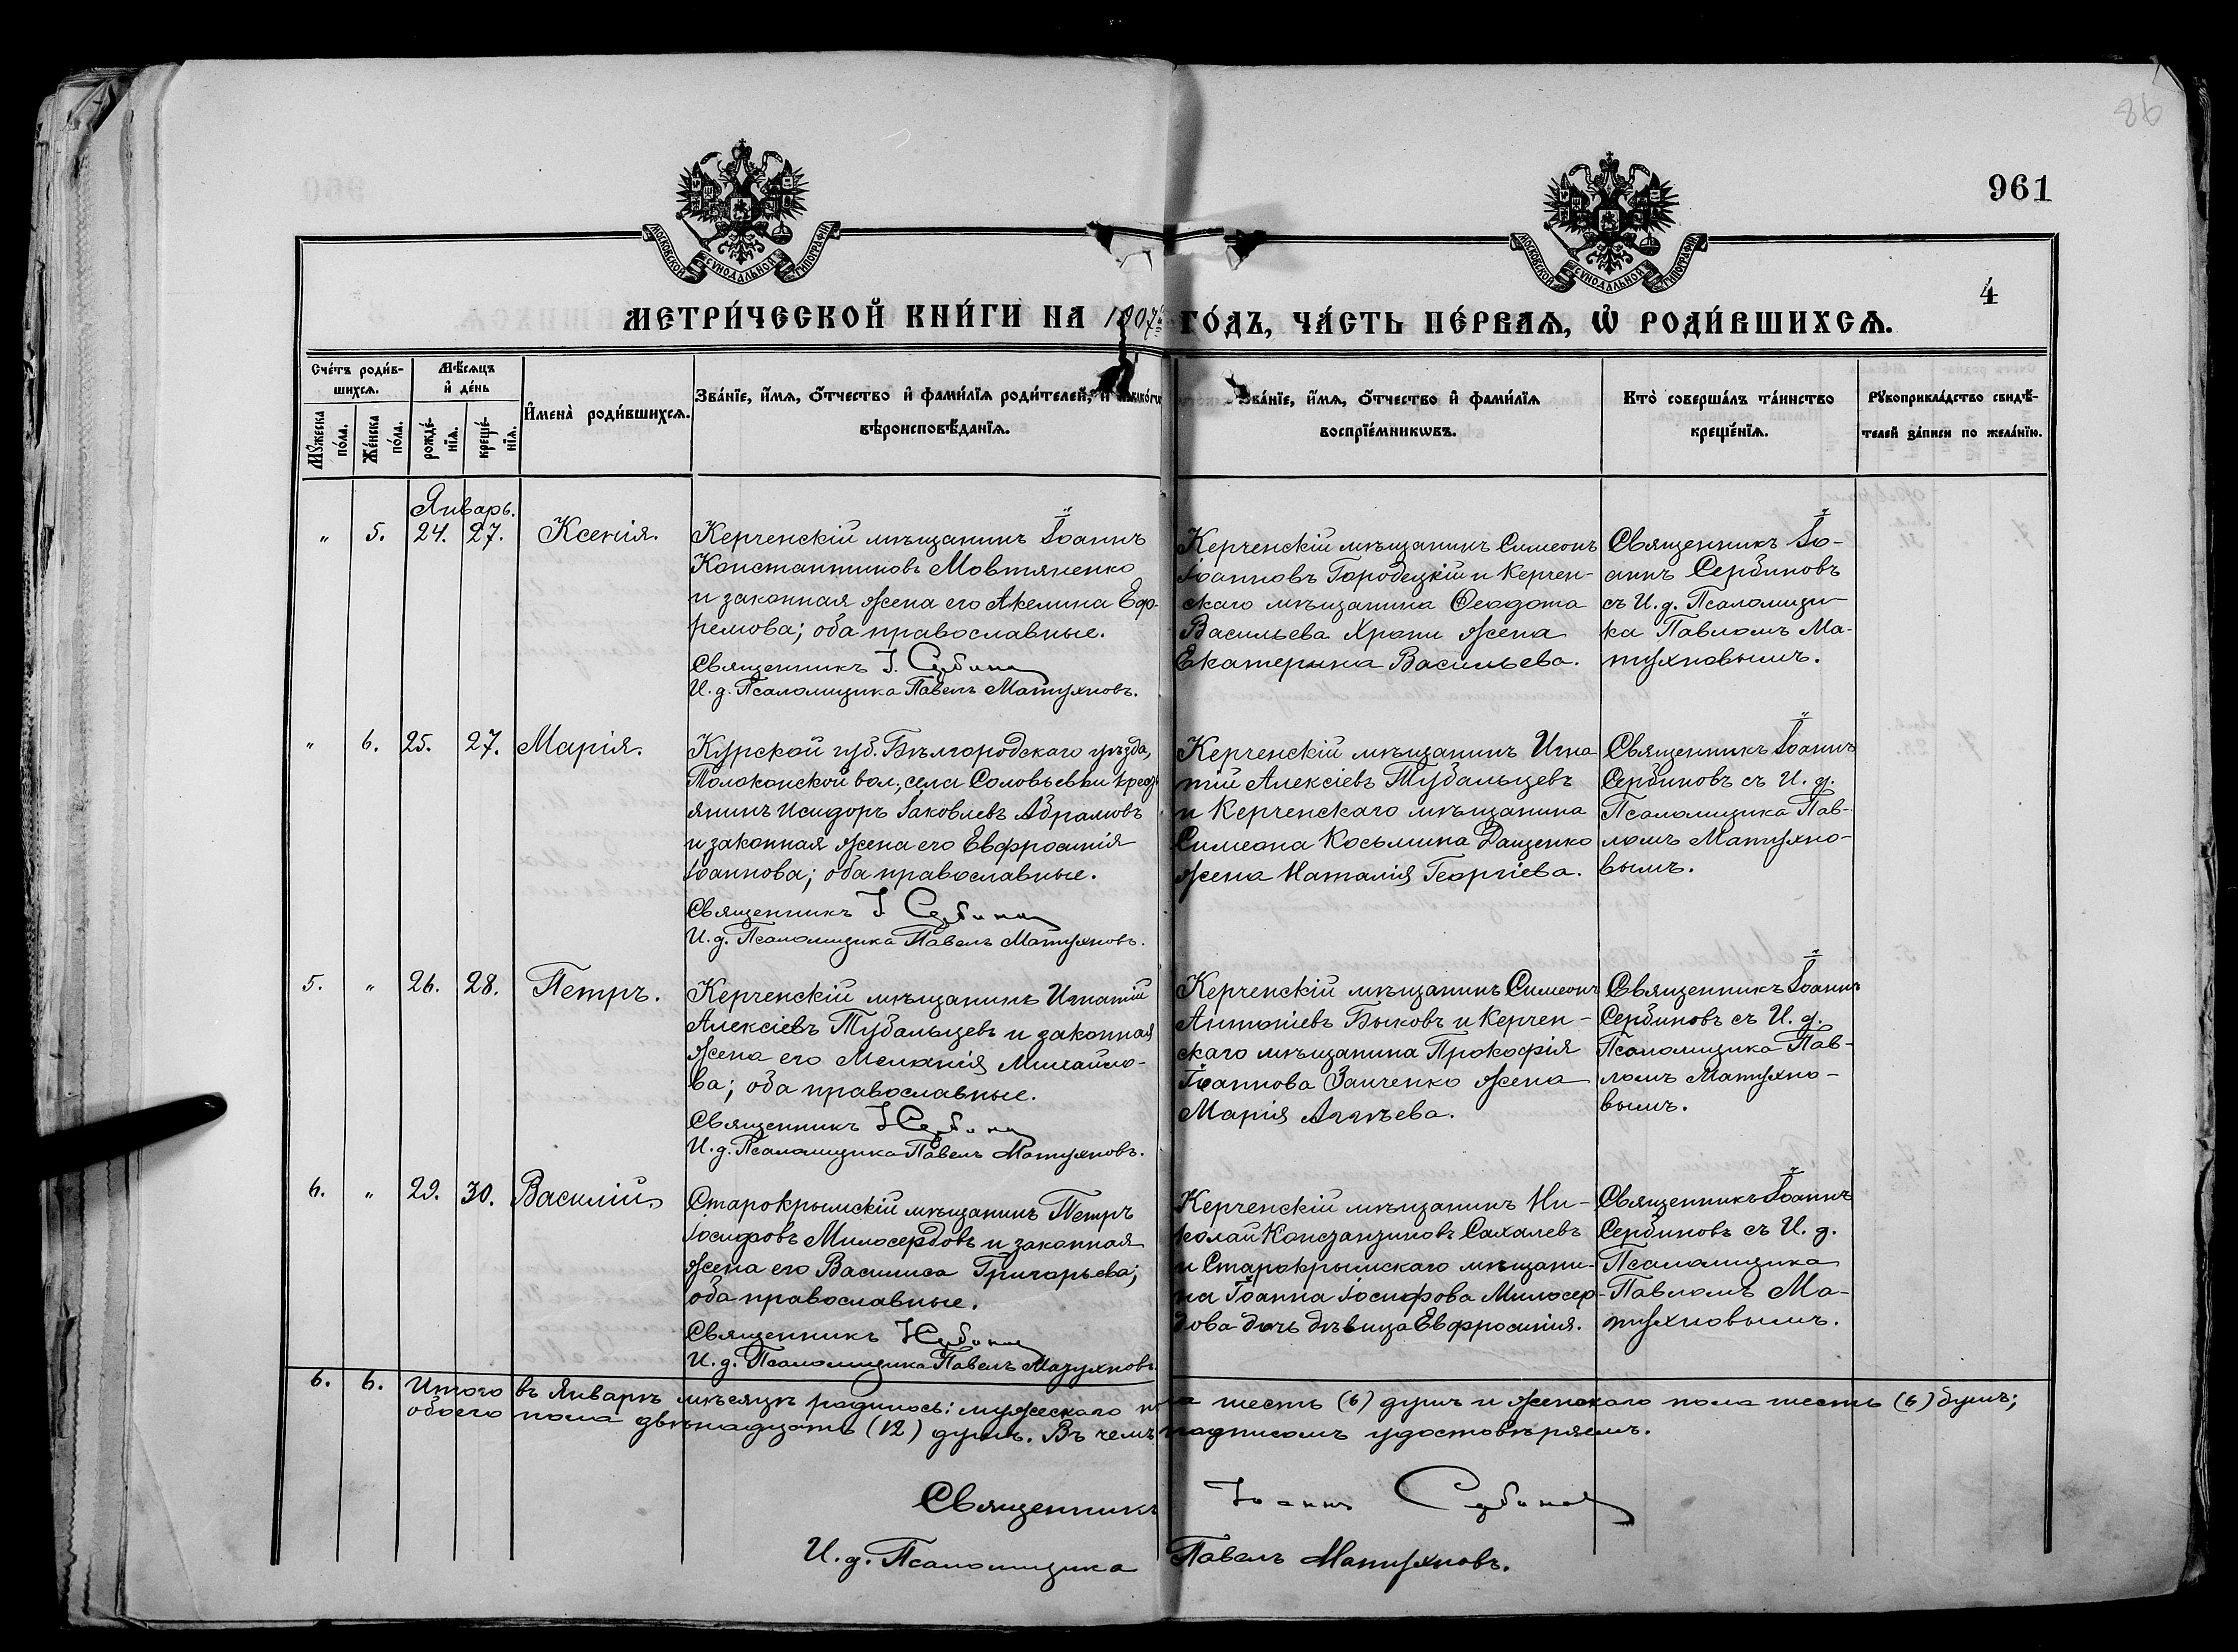 86
961
МОСКОВСКОЙ СѴНОДАЛЬНОЙ ТИПОГРАФІИ
МОСКОВСКОЙ СѴНОДАЛЬНОЙ ТИПОГРАФІИ
4
МЕТРИ́ЧЕСКОЙ КНИ́ГИ НА 1907й ГО́ДЪ, ЧА́СТЬ ПЕ́РВАѦ, Ѡ҆ РОДИ́ВШИХСѦ.
Сче́тъ роди́в-
шихсѧ.
Мꙋ́жеска
по́ла.
Же́нска
по́ла.
Мѣ́сѧцъ
и҆ де́нь
рожде́-
нїѧ.
креще́-
нїѧ.
И҆мена̀ роди́вшихсѧ.
Зва́нїе, и҆́мѧ, ѻ҆́тчество и҆ фами́лїѧ роди́телей, и҆
вѣроисповѣ́данїѧ.
Зва́нїе, и҆́мѧ, ѻ҆́тчество и҆ фами́лїѧ
воспрїе́мникѡвъ.
Кто̀ соверша́лъ та́инство
креще́нїѧ.
Рꙋкоприкла́дство свидѣ́-
телей за́писи по жела́нїю.
Январь.
" 5. 24. 27. Ксенія.
Керченскій мѣщанинъ Іоаннъ
Константиновъ Мовтяненко
и законная жена его Акелина Еф-
ремова; оба православные.
Священникъ І. Сербиновъ
И. д. Псаломщика Павелъ Матухновъ.
Керченскій мѣщанинъ Симеонъ
Іоанновъ Городецкій и Керчен-
скаго мѣщанина Ѳеодота
Васильева Храпи жена
Екатерина Васильева.
Священникъ Іо-
аннъ Сербиновъ
съ И. д. Псаломщи-
ка Павломъ Ма-
тухновымъ.
" 6. 25. 27. Марія.
Курской губ. Бѣлгородскаго уѣзда,
Толоконской вол., села Соловьевки крест-
янинъ Исидоръ Іаковлевъ Абрамовъ
и законная жена его Евфросинія
Іоаннова; оба православные.
Священникъ І Сербиновъ
И. д. Псаломщика Павелъ Матухновъ.
Керченскій мѣщанинъ Игна
тій Алексіевъ Тубальцевъ
и Керченскаго мѣщанина
Симеона Косьмина Даценко
жена Наталія Георгіева.
Священникъ Іоаннъ
Сербиновъ съ И. д.
Псаломщика Пав-
ломъ Матухно-
вымъ.
5. " 26. 28. Петръ.
Керченскій мѣщанинъ Игнатій
Алексіевъ Тубальцевъ и законная
жена его Меланія Михайло-
ва; оба православные.
Священникъ І Сербиновъ
И. д. Псаломщика Павелъ Матухновъ.
Керченскій мѣщанинъ Симеонъ
Антоніевъ Быковъ и Керчен-
скаго мѣщанина Прокофія
Іоаннова Заиченко жена
Марія Аггѣева.
Священникъ Іоаннъ
Сербиновъ съ И. д.
Псаломщика Пав-
ломъ Матухно-
вымъ.
6. " 29. 30. Василій.
Старокрымскій мѣщанинъ Петръ
Іосифовъ Милосердовъ и законная
жена его Василиса Григорьева;
оба православные.
Священникъ І Сербиновъ
И. д. Псаломщика Павелъ Матухновъ.
Керченскій мѣщанинъ Ни-
колай Константиновъ Сахалевъ
и Старокрымскаго мѣщани-
на Іоанна Іосифова Милосер-
дова дочь дѣвица Евфросинія.
Священникъ Іоаннъ
Сербиновъ съ И. д.
Псаломщика
Павломъ Ма-
тухновымъ.
6. 6. Итого въ Январѣ мѣсяцѣ родилось: мужескаго пола шесть (6) душъ и женскаго пола шесть (6) душъ;
обоего пола двѣнадцать (12) душъ. Въ чемъ подписомъ удостовѣряемъ.
Священникъ Іоаннъ Сербиновъ
И. д. Псаломщика Павелъ Матухновъ.